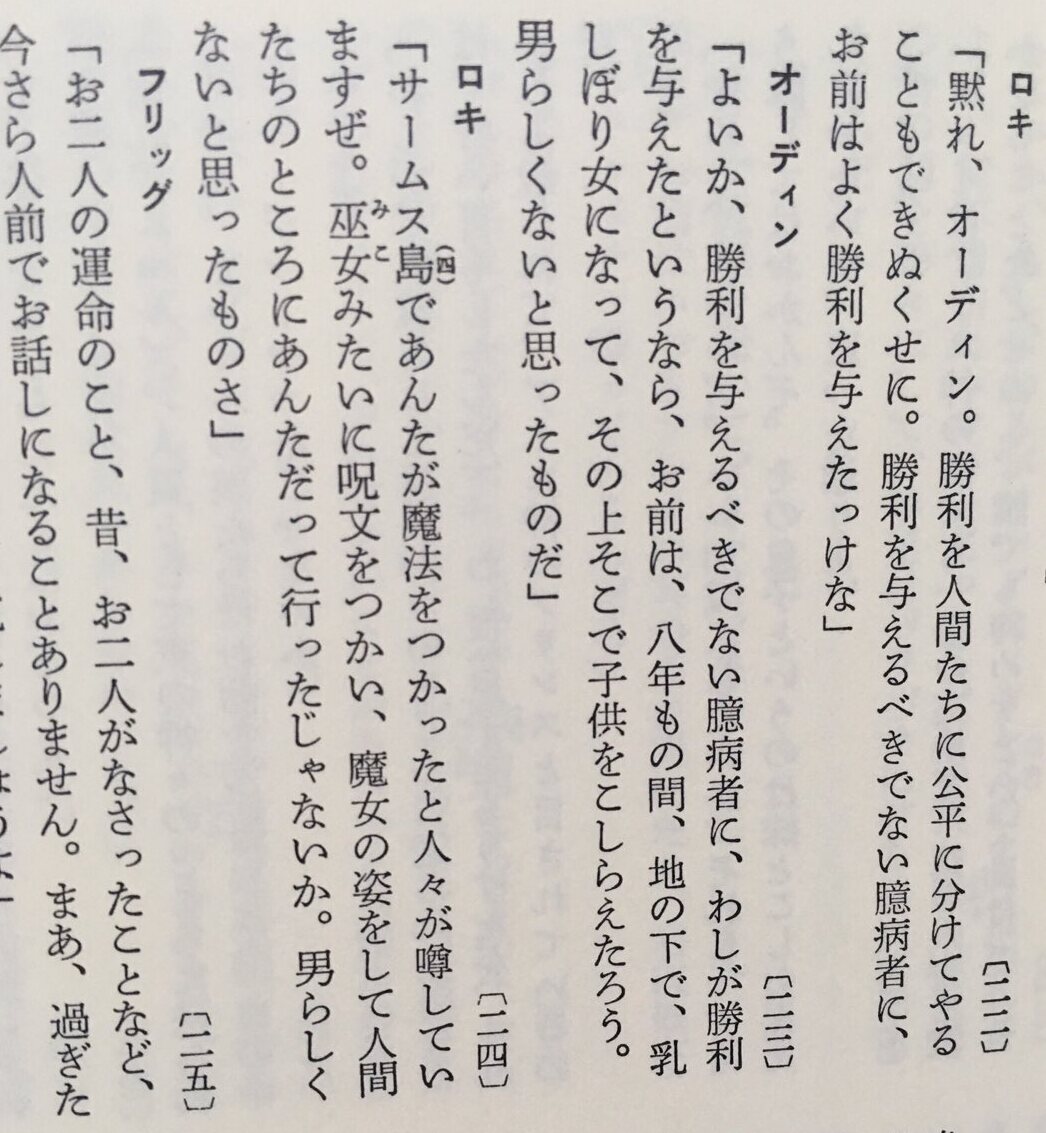 ロキ 〔二二〕
「黙れ、オーディン。勝利を人間たちに公平に分けてやる
こともできぬくせに。勝利を与えるべきでない臆病者に、
お前はよく勝利を与えたっけな」
オーディン 〔二三〕
「よいか、勝利を与えるべきでない臆病者に、わしが勝利
を与えたというなら、お前は、八年もの間、地の下で、乳
しぼり女になって、その上そこで子供をこしらえたろう。
男らしくないと思ったものだ」
ロキ 〔二四〕
「サームス島(四)であんたが魔法をつかったと人々が噂してい
ますぜ。巫女みこみたいに呪文をつかい、魔女の姿をして人間
たちのところにあんただって行ったじゃないか。男らしく
ないと思ったものさ」
フリッグ 〔二五〕
「お二人の運命のこと、昔、お二人がなさったことなど、
今さら人前でお話しになることありません。まあ、過ぎた